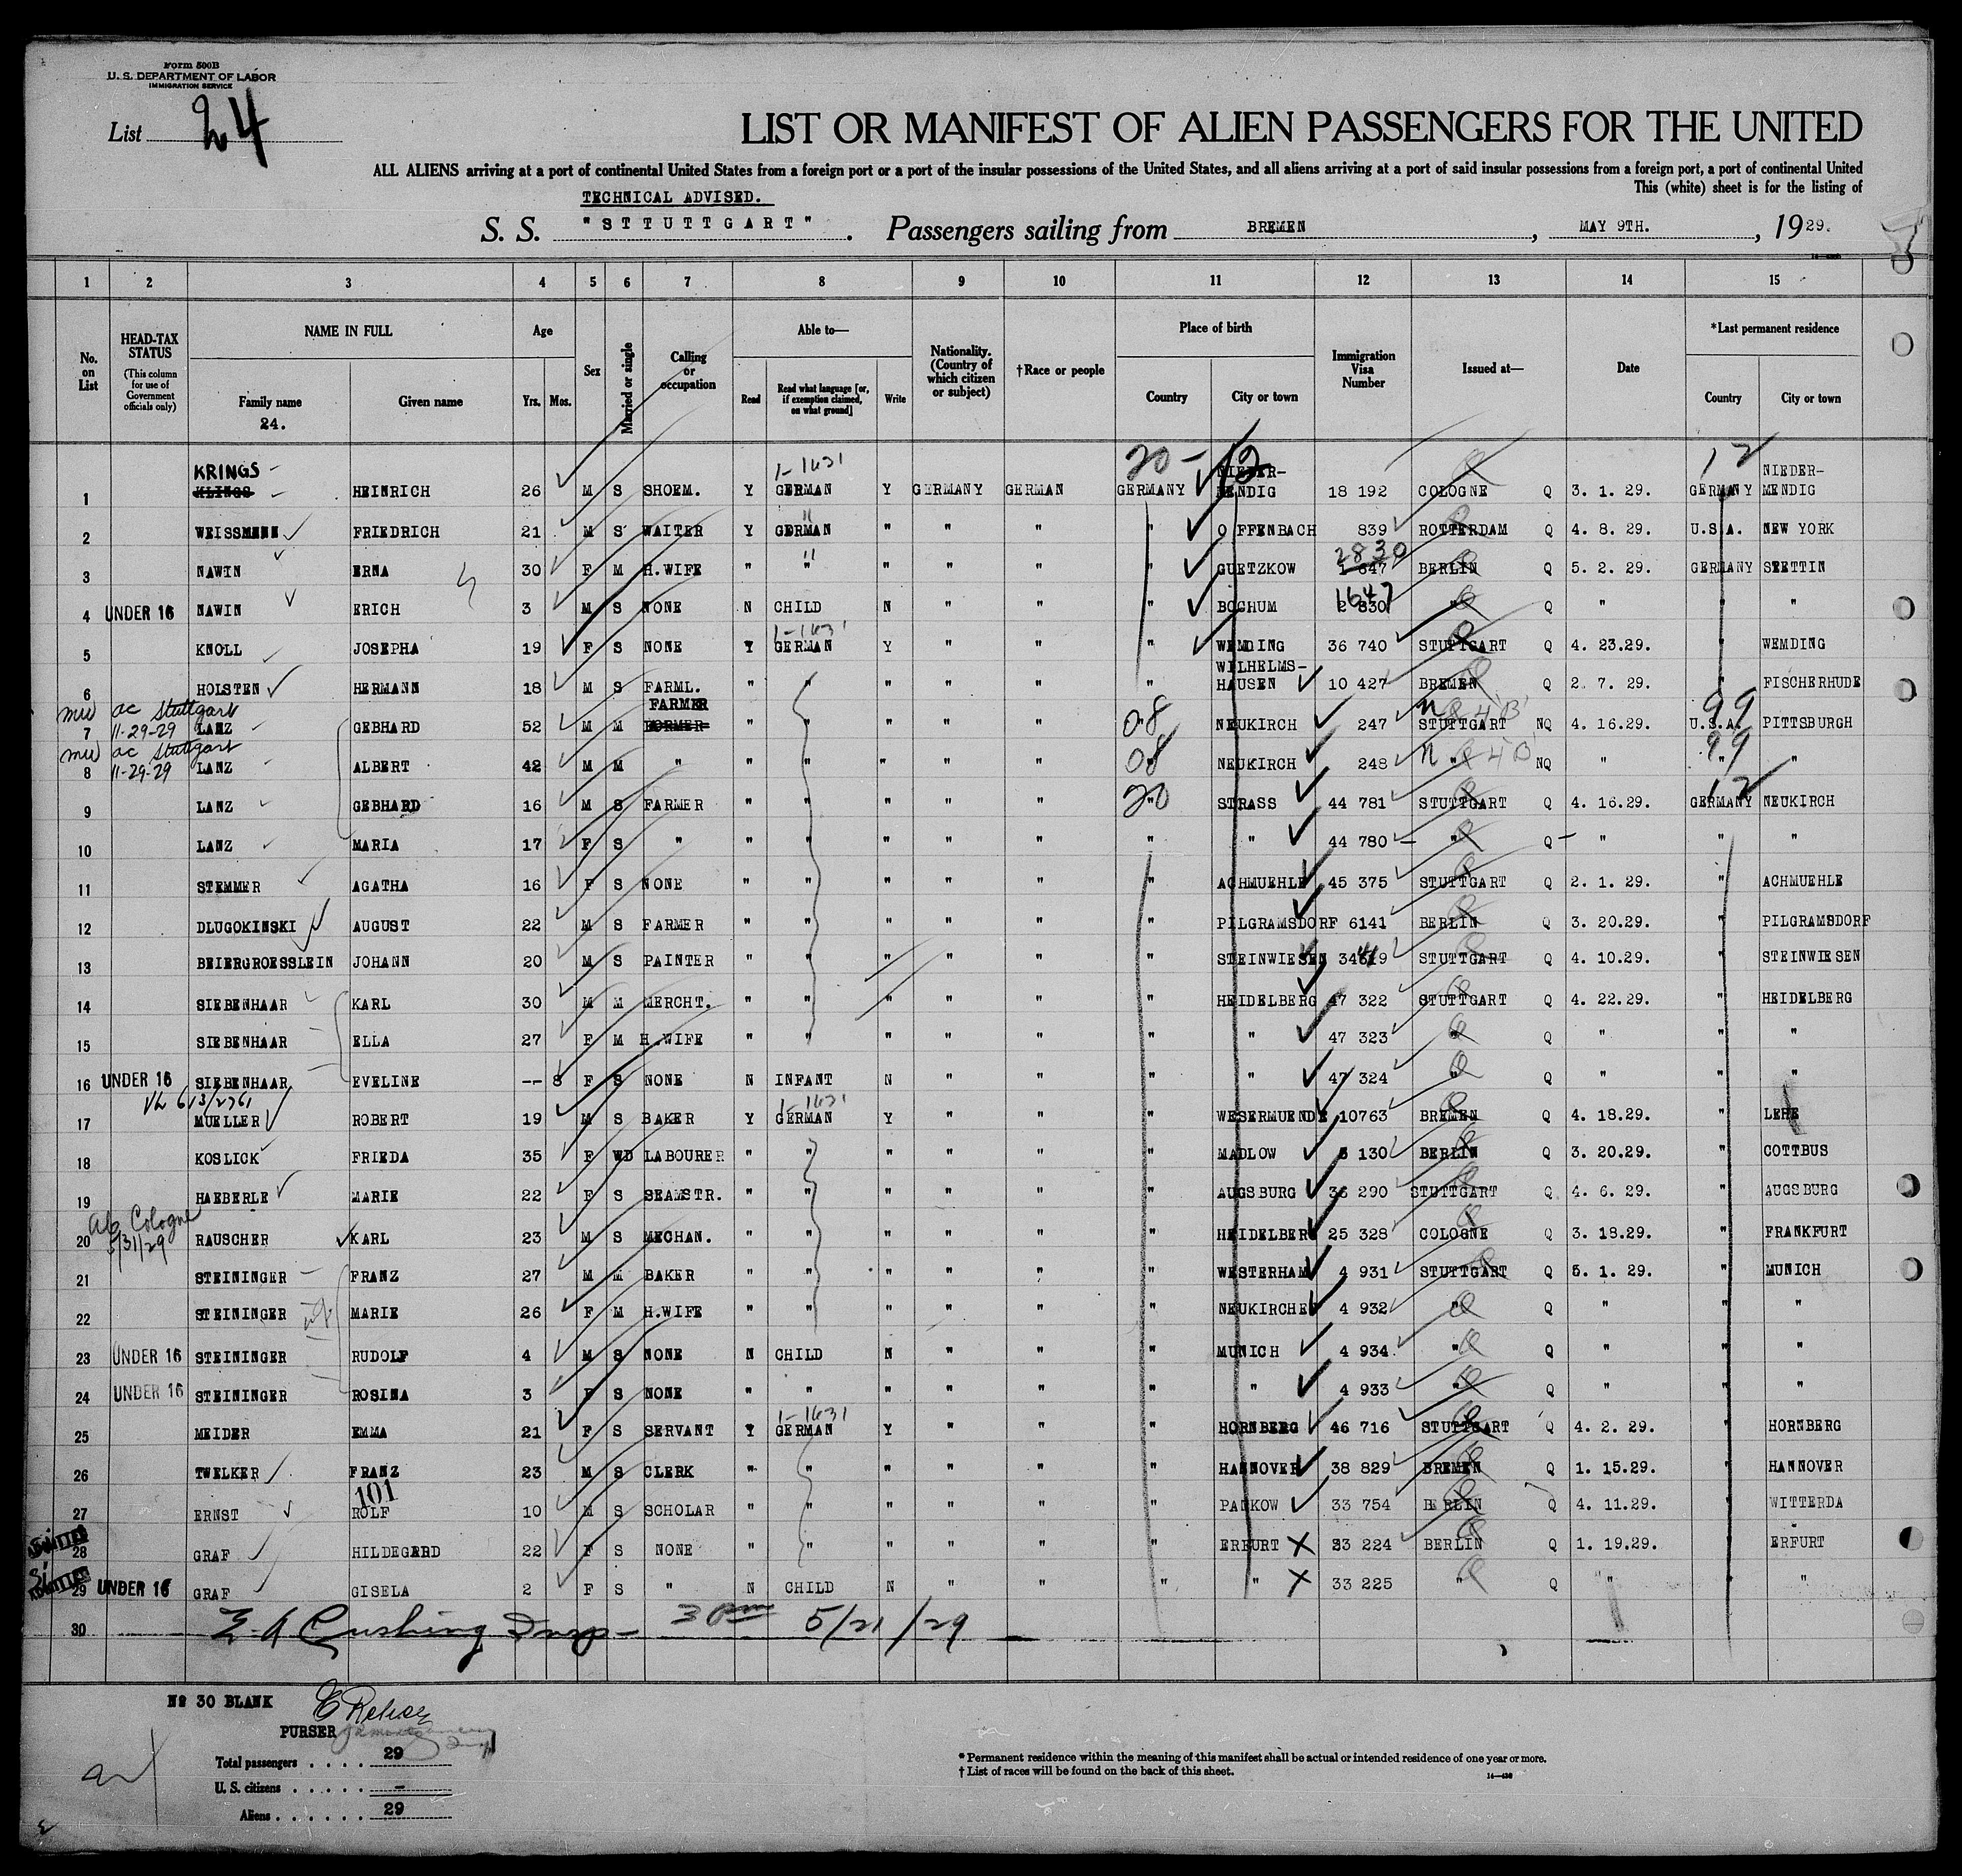 Form 500B
U. S. DEPARTMENT OF LABOR
IMMIGRATION SERVICE
List 24
LIST OR MANIFEST OF ALIEN PASSENGERS FOR THE UNITED
ALL ALIENS arriving at a port of continental United States from a foreign port or a port of the insular possessions of the United States, and all aliens arriving at a port of said insular possessions from a foreign port, a port of continental United
This (white) sheet is for the listing of
TECHNICAL ADVISED.
S. S. "STTUTTGART". Passengers sailing from BREMEN, MAY 9TH., 1929.
1 2 3 4 5 6 7 8 9 10 11 12 13 14 15
No. on List
HEAD-TAX STATUS
(This column for use of Government officials only)
NAME IN FULL
Family name
24.
Given name
Age
Yrs. Mos.
Sex
Married or single
Calling or occupation
Able to—
Read
Read what language [or, if exemption claimed, on what ground]
Write
Nationality. (Country of which citizen or subject)
†Race or people
Place of birth
Country
City or town
Immigration Visa Number
Issued at—
Date
*Last permanent residence
Country
City or town
KRINGS 1-1631 20 - 12 NIEDER- 12 NIEDER-
1 KLINGS HEINRICH 26 M S SHOEM. Y GERMAN Y GERMANY GERMAN GERMANY MENDIG 18 192 COLOGNE Q 3. 1. 29. GERMANY MENDIG
2 WEISSMENN FRIEDRICH 21 M S WAITER Y GERMAN " " " " OFFENBACH 839 ROTTERDAM Q 4. 8. 29. U.S.A. NEW YORK
2830
3 NAWIN ERNA 30 F M H.WIFE " " " " " " GUETZKOW 1 647 BERLIN Q 5. 2. 29. GERMANY STETTIN
1647
4 UNDER 16 NAWIN ERICH 3 M S NONE N CHILD N " " " BOCHUM 2 830 " Q " " "
1-1631
5 KNOLL JOSEPHA 19 F S NONE Y GERMAN Y " " " WEMDING 36 740 STUTTGART Q 4. 23.29. " WEMDING
WILHELMS-
6 HOLSTEN HERMANN 18 M S FARML. " " " " " " HAUSEN 10 427 BREMEN Q 2. 7. 29. " FISCHERHUDE
ac Stuttgart FARMER 08 99
7 11-29-29 LANZ GEBHARD 52 M M FORMER " " " " " " NEUKIRCH 247 STUTTGART NQ 4. 16.29. U.S.A. PITTSBURGH
ac Stuttgart 08 99
8 11-29-29 LANZ ALBERT 42 M M " " " " " " " NEUKIRCH 248 " NQ " " "
20 12
9 LANZ GEBHARD 16 M S FARMER " " " " " " STRASS 44 781 STUTTGART Q 4. 16.29. GERMANY NEUKIRCH
10 LANZ MARIA 17 F S " " " " " " " " 44 780 " Q " " "
11 STEMMER AGATHA 16 F S NONE " " " " " " ACHMUEHLE 45 375 STUTTGART Q 2. 1. 29. " ACHMUEHLE
12 DLUGOKINSKI AUGUST 22 M S FARMER " " " " " " PILGRAMSDORF 6141 BERLIN Q 3. 20.29. " PILGRAMSDORF
13 BEIERGROESSLEIN JOHANN 20 M S PAINTER " " " " " " STEINWIESEN STUTTGART Q 4. 10.29. " STEINWIESEN
14 SIEBENHAAR KARL 30 M M MERCHT. " " " " " " HEIDELBERG 47 322 STUTTGART Q 4. 22.29. " HEIDELBERG
15 SIEBENHAAR ELLA 27 F M H.WIFE " " " " " " " 47 323 " Q " " "
16 UNDER 16 SIEBENHAAR EVELINE -- 8 F S NONE N INFANT N " " " " 47 324 " Q " " "
1-1631
17 MUELLER ROBERT 19 M S BAKER Y GERMAN Y " " " WESERMUENDE 10763 BREMEN Q 4. 18.29. " LEHE
18 KOSLICK FRIEDA 35 F WD LABOURER " " " " " " MADLOW 5 130 BERLIN Q 3. 20.29. " COTTBUS
19 HAEBERLE MARIE 22 F S SEAMSTR. " " " " " " AUGSBURG 36 290 STUTTGART Q 4. 6. 29. " AUGSBURG
Cologne
20 5/31/29 RAUSCHER KARL 23 M S MECHAN. " " " " " " HEIDELBERG 25 328 COLOGNE Q 3. 18.29. " FRANKFURT
21 STEININGER FRANZ 27 M M BAKER " " " " " " WESTERHAM 4 931 STUTTGART Q 5. 1. 29. " MUNICH
22 STEININGER MARIE 26 F M H.WIFE " " " " " " NEUKIRCHEN 4 932 " Q " " "
23 UNDER 16 STEININGER RUDOLF 4 M S NONE N CHILD N " " " MUNICH 4 934 " Q " " "
24 UNDER 16 STEININGER ROSINA 3 F S NONE " " " " " " " 4 933 " Q " " "
1-1631
25 MEIDER EMMA 21 F S SERVANT Y GERMAN Y " " " HORNBERG 46 716 STUTTGART Q 4. 2. 29. " HORNBERG
26 TWELKER FRANZ 23 M S CLERK " " " " " " HANNOVER 38 829 BREMEN Q 1. 15.29. " HANNOVER
101
27 ERNST ROLF 10 M S SCHOLAR " " " " " " PANKOW 33 754 BERLIN Q 4. 11.29. " WITTERDA
28 GRAF HILDEGERD 22 F S NONE " " " " " " ERFURT X 33 224 BERLIN Q 1. 19.29. " ERFURT
29 UNDER 16 GRAF GISELA 2 F S " N CHILD N " " " " X 33 225 " Q " " "
30 E A Cushing Insp - 3 pm 5/21/29
No 30 BLANK
PURSER
Total passengers . . . . 29
U. S. citizens . . . . . -
Aliens . . . . . . 29
* Permanent residence within the meaning of this manifest shall be actual or intended residence of one year or more.
† List of races will be found on the back of this sheet.